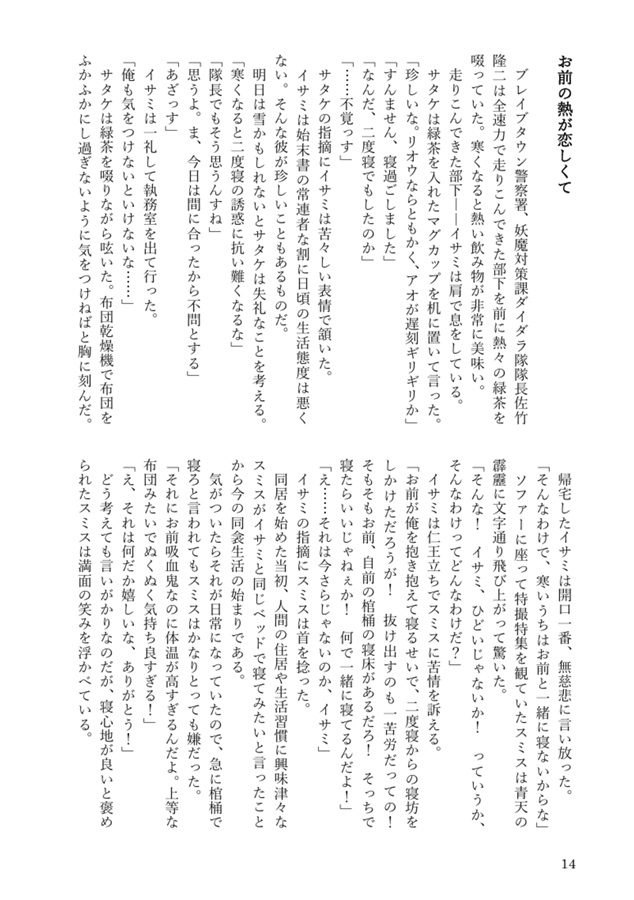 お前の熱が恋しくて
　ブレイブタウン警察署、妖魔対策課ダイダラ隊隊長佐竹
隆二は全速力で走りこんできた部下を前に熱々の緑茶を
啜っていた。寒くなると熱い飲み物が非常に美味い。
　走りこんできた部下――イサミは肩で息をしている。
　サタケは緑茶を入れたマグカップを机に置いて言った。
「珍しいな。リオウならともかく、アオが遅刻ギリギリか」
「すんません、寝過ごしました」
「なんだ、二度寝でもしたのか」
「……不覚っす」
　サタケの指摘にイサミは苦々しい表情で頷いた。
　イサミは始末書の常連者な割に日頃の生活態度は悪く
ない。そんな彼が珍しいこともあるものだ。
　明日は雪かもしれないとサタケは失礼なことを考える。
「寒くなると二度寝の誘惑に抗い難くなるな」
「隊長でもそう思うんすね」
「思うよ。ま、今日は間に合ったから不問とする」
「あざっす」
　イサミは一礼して執務室を出て行った。
「俺も気をつけないといけないな……」
　サタケは緑茶を啜りながら呟いた。布団乾燥機で布団を
ふかふかにし過ぎないように気をつけねばと胸に刻んだ。
　帰宅したイサミは開口一番、無慈悲に言い放った。
「そんなわけで、寒いうちはお前と一緒に寝ないからな」
　ソファーに座って特撮特集を観ていたスミスは青天の
霹靂に文字通り飛び上がって驚いた。
「そんな！　イサミ、ひどいじゃないか！　っていうか、
そんなわけってどんなわけだ？」
　イサミは仁王立ちでスミスに苦情を訴える。
「お前が俺を抱き抱えて寝るせいで、二度寝からの寝坊を
しかけただろうが！　抜け出すのも一苦労だっての！
そもそもお前、自前の棺桶の寝床があるだろ！　そっちで
寝たらいいじゃねぇか！　何で一緒に寝てるんだよ！」
「え……それは今さらじゃないのか、イサミ」
　イサミの指摘にスミスは首を捻った。
　同居を始めた当初、人間の住居や生活習慣に興味津々な
スミスがイサミと同じベッドで寝てみたいと言ったこと
から今の同衾生活の始まりである。
　気がついたらそれが日常になっていたので、急に棺桶で
寝ろと言われてもスミスはかなりとっても嫌だった。
「それにお前吸血鬼なのに体温が高すぎるんだよ。上等な
布団みたいでぬくぬく気持ち良すぎる！」
「え、それは何だか嬉しいな、ありがとう！」
　どう考えても言いがかりなのだが、寝心地が良いと褒め
られたスミスは満面の笑みを浮かべている。
14